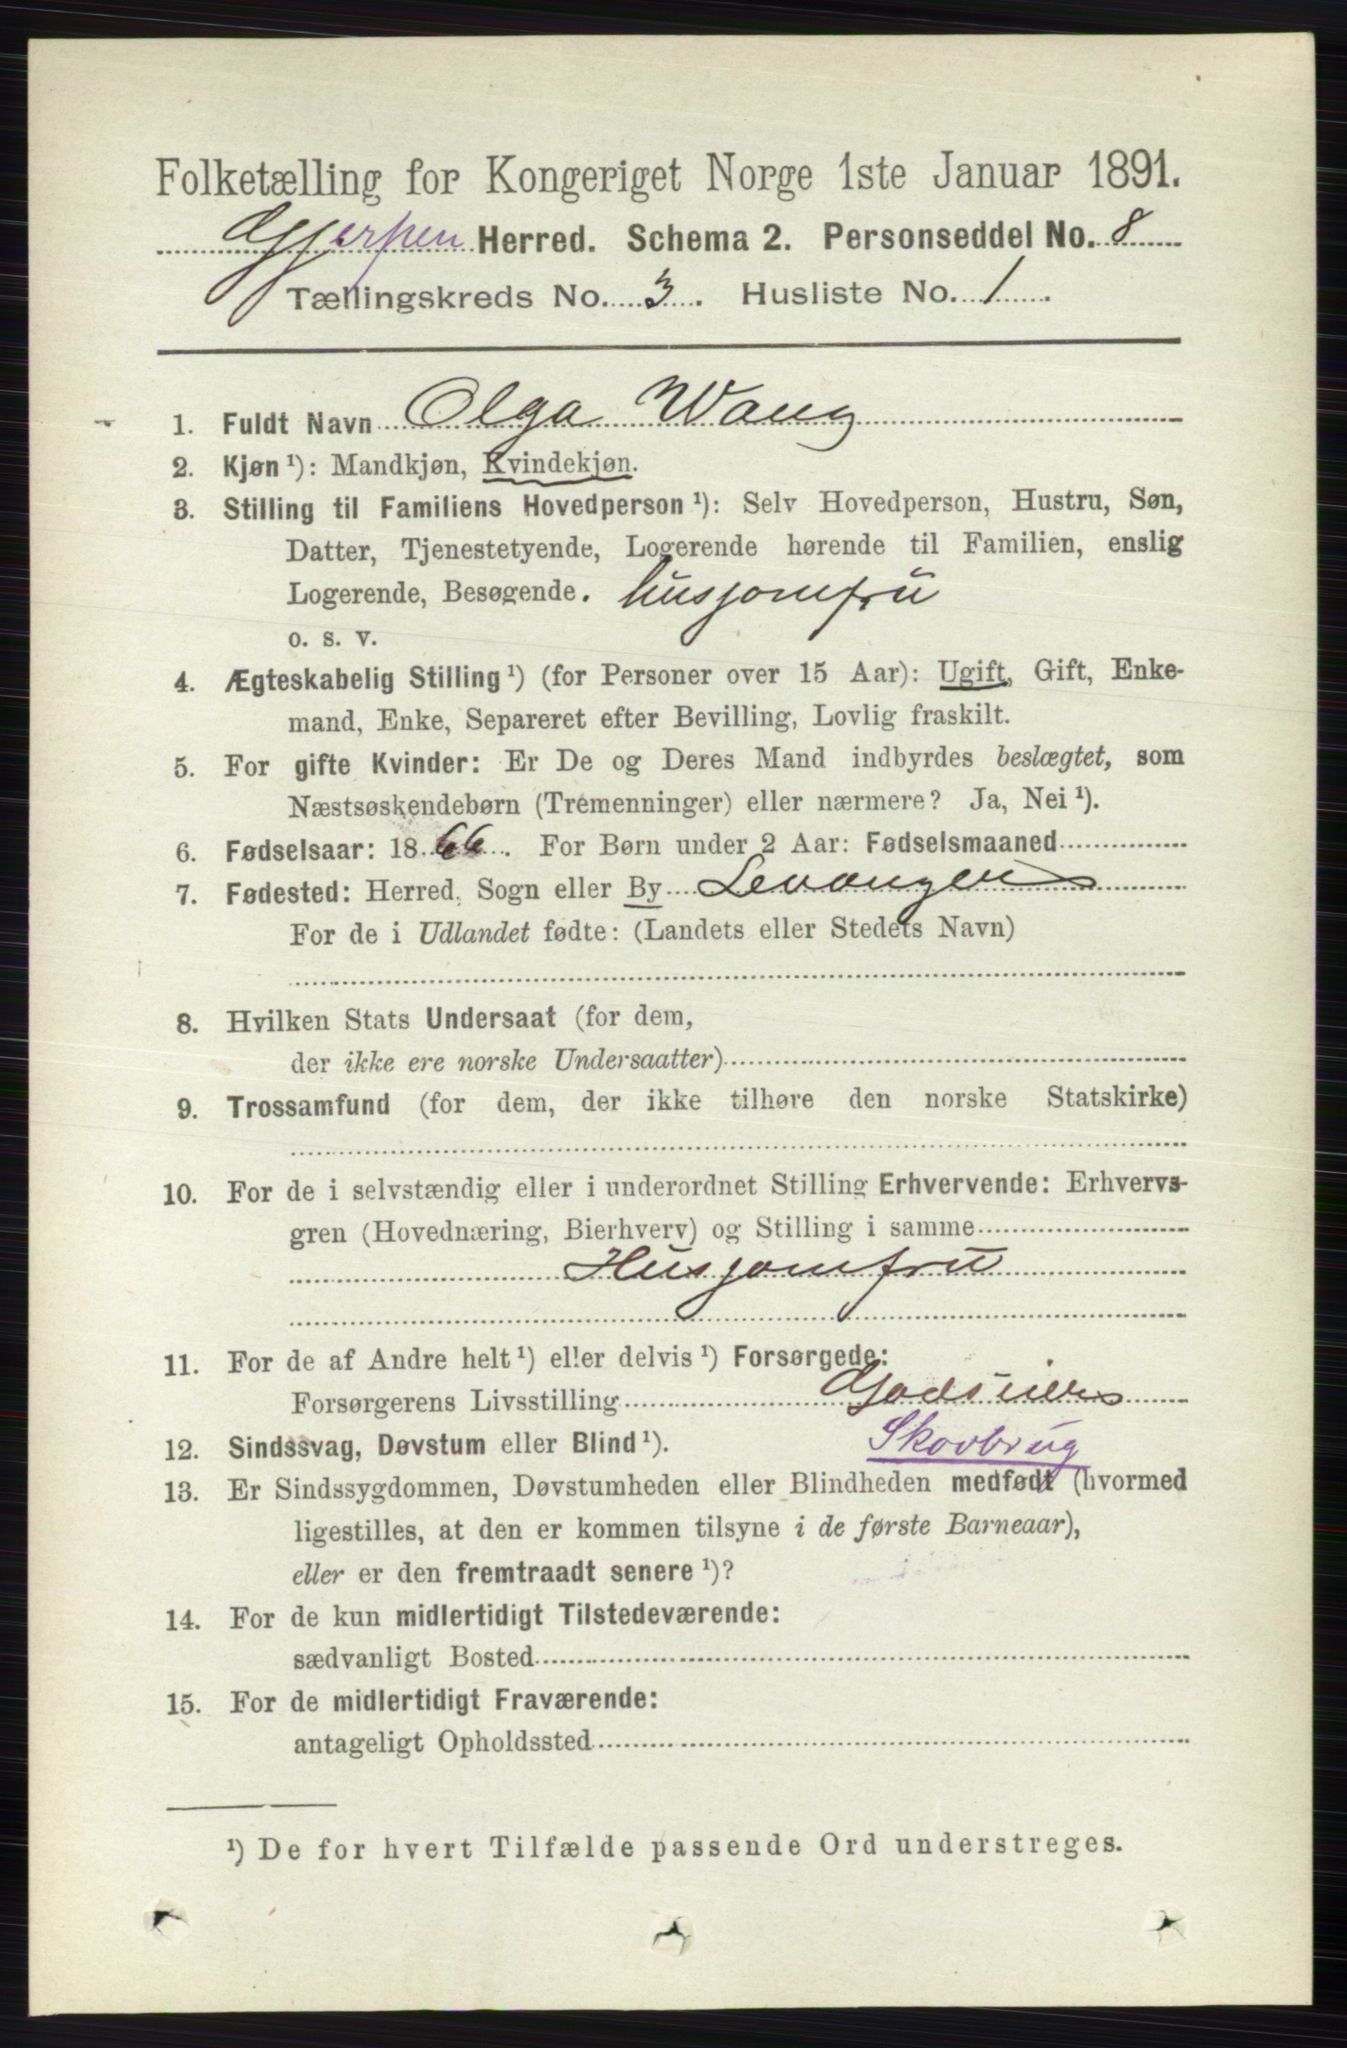 Folketælling for Kongeriget Norge 1ste Januar 1891.
Gjerpen Herred. Schema 2. Personseddel No. 8
Tællingskreds No. 3. Husliste No. 1.
1. Fuldt Navn Olga Wang
2. Kjøn ¹): Mandkjøn, Kvindekjøn.
3. Stilling til Familiens Hovedperson ¹): Selv Hovedperson, Hustru, Søn,
Datter, Tjenestetyende, Logerende hørende til Familien, enslig
Logerende, Besøgende. husjomfru
o. s. v.
4. Ægteskabelig Stilling ¹) (for Personer over 15 Aar): Ugift, Gift, Enke-
mand, Enke, Separeret efter Bevilling, Lovlig fraskilt.
5. For gifte Kvinder: Er De og Deres Mand indbyrdes beslægtet, som
Næstsøskendebørn (Tremenninger) eller nærmere? Ja, Nei ¹).
6. Fødselsaar: 1866. For Børn under 2 Aar: Fødselsmaaned
7. Fødested: Herred, Sogn eller By Levanger
For de i Udlandet fødte: (Landets eller Stedets Navn)
8. Hvilken Stats Undersaat (for dem,
der ikke ere norske Undersaatter)
9. Trossamfund (for dem, der ikke tilhøre den norske Statskirke)
10. For de i selvstændig eller i underordnet Stilling Erhvervende: Erhvervs-
gren (Hovednæring, Bierhverv) og Stilling i samme
Husjomfru
11. For de af Andre helt ¹) eller delvis ¹) Forsørgede:
Forsørgerens Livsstilling Godseier
12. Sindssvag, Døvstum eller Blind ¹). Skovbrug
13. Er Sindssygdommen, Døvstumheden eller Blindheden medfødt (hvormed
ligestilles, at den er kommen tilsyne i de første Barneaar),
eller er den fremtraadt senere ¹)?
14. For de kun midlertidigt Tilstedeværende:
sædvanligt Bosted
15. For de midlertidigt Fraværende:
antageligt Opholdssted
¹) De for hvert Tilfælde passende Ord understreges.